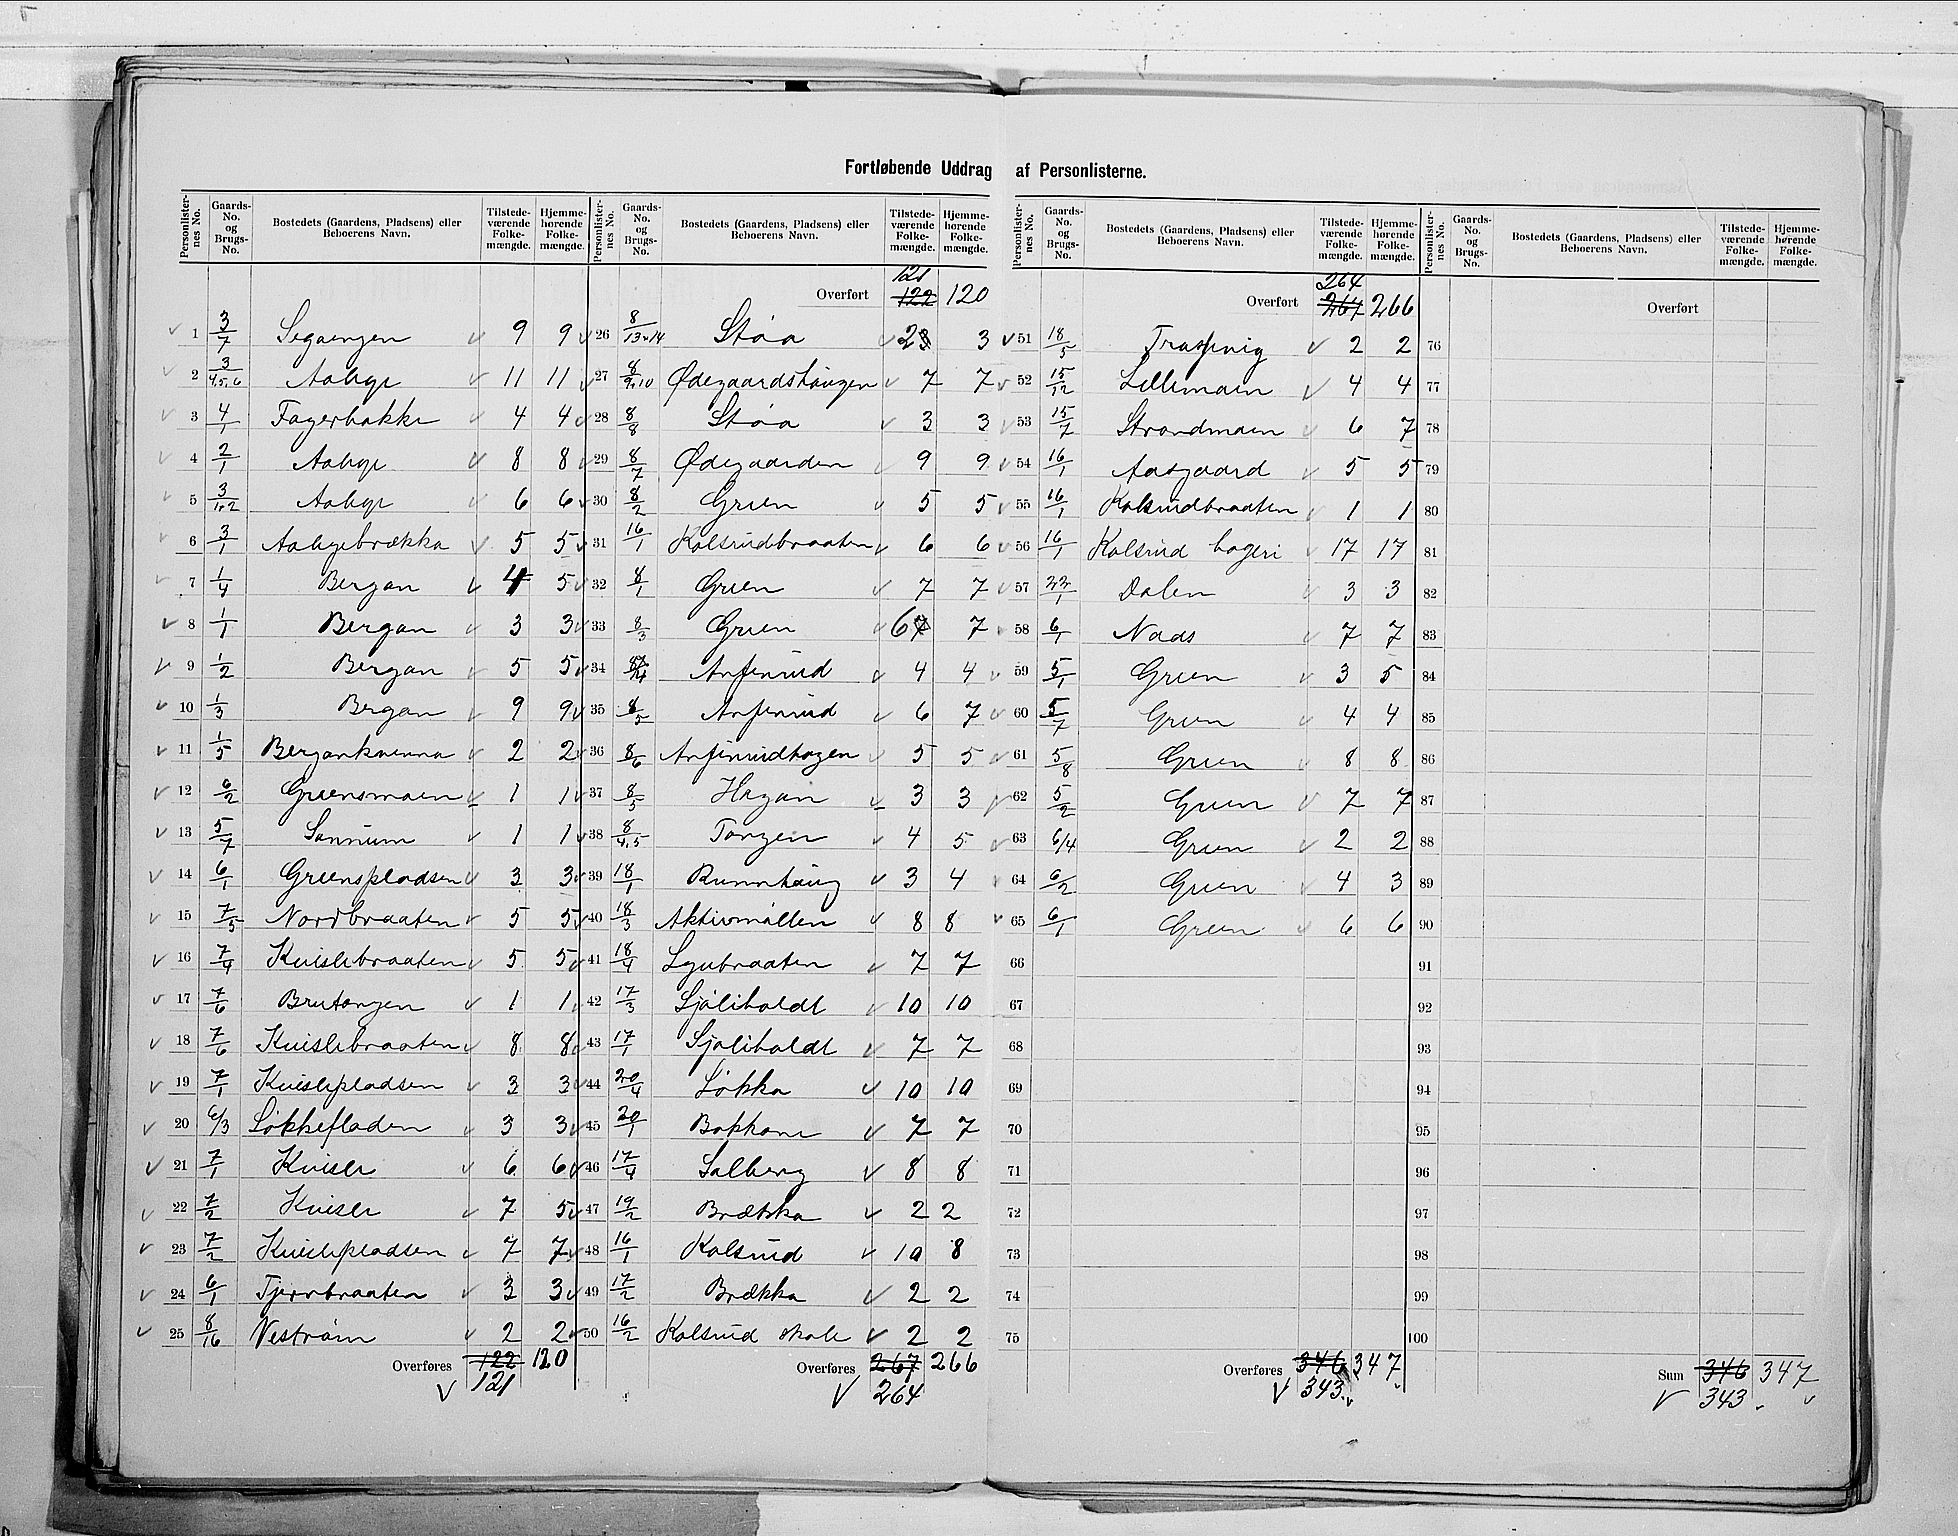 Fortløbende Uddrag af Personlisterne.
Personlisternes No. Gaards-No. og Brugs-No. Bostedets (Gaardens, Pladsens) eller Beboerens Navn. Tilstedeværende Folkemængde. Hjemmehørende Folkemængde.
1 3/7 9 9
2 3/4.5.6 Aabye 11 11
3 4/1 Fagerbakke 4 4
4 2/1 Aabye 8 8
5 3/1.2 Aabye 6 6
6 3/1 Aabyebrækka 5 5
7 1/4 Bergan 4 5
8 1/1 Bergan 3 3
9 1/2 Bergan 5 5
10 1/3 Bergan 9 9
11 1/5 Bergankverna 2 2
12 6/2 Gruensmoen 1 1
13 5/7 Sannum 1 1
14 6/1 Gruenspladsen 3 3
15 7/5 Nordbraaten 5 5
16 7/4 Kuislebraaten 5 5
17 7/6 Brutangen 1 1
18 7/6 Kuislebraaten 8 8
19 7/1 Kuislepladsen 3 3
20 6/3 Løkkefladen 3 3
21 7/1 Kuisle 6 6
22 7/2 Kuisle 7 5
23 7/2 Kuislepladsen 7 7
24 6/1 Tjernbraaten 3 3
25 8/16 Vestrom 2 2
Overføres 122 120
121
Personlisternes No. Gaards-No. og Brugs-No. Bostedets (Gaardens, Pladsens) eller Beboerens Navn. Tilstedeværende Folkemængde. Hjemmehørende Folkemængde.
121
Overført 122 120
26 8/13.14 Støa 2 3
27 8/9.10 Ødegaardshaugen 7 7
28 8/8 Støa 3 3
29 8/7 Ødegaarden 9 9
30 8/2 Gruen 5 5
31 16/1 Kolsrudbraaten 6 6
32 8/1 Gruen 7 7
33 8/3 Gruen 6 7
34 Anfinrud 4 4
35 8/5 Anfinrud 6 7
36 8/6 Anfinrudhagen 5 5
37 8/5 Hagan 3 3
38 8/4.5 Tangen 4 5
39 18/1 Runnhaug 3 4
40 18/3 Aktivmøllen 8 8
41 18/4 Lyubraaten 7 7
42 17/3 Sjøliholdt 10 10
43 17/1 Sjøliholdt 7 7
44 20/4 Løkka 10 10
45 20/1 Bakkane 7 7
46 17/4 Solberg 8 8
47 19/2 Brækka 2 2
48 16/1 Kolsrud 10 8
49 17/2 Brækka 2 2
50 16/2 Kolsrud skole 2 2
Overføres 267 266
264
Personlisternes No. Gaards-No. og Brugs-No. Bostedets (Gaardens, Pladsens) eller Beboerens Navn. Tilstedeværende Folkemængde. Hjemmehørende Folkemængde.
264
Overført 267 266
51 18/5 2 2
52 15/12 Lillemoen 4 4
53 15/7 Strandmoen 6 7
54 16/1 Aasgaard 5 5
55 16/1 Kolsrudbraaten 1 1
56 16/1 Kolsrud hageri 17 17
57 22/1 Dalen 3 3
58 6/1 Naas 7 7
59 5/1 Gruen 3 5
60 5/7 Gruen 4 4
61 5/8 Gruen 8 8
62 5/2 Gruen 7 7
63 6/4 Gruen 2 2
64 6/2 Gruen 4 3
65 6/1 Gruen 6 6
66
67
68
69
70
71
72
73
74
75
Overføres 346 347
343
Personlisternes No. Gaards-No. og Brugs-No. Bostedets (Gaardens, Pladsens) eller Beboerens Navn. Tilstedeværende Folkemængde. Hjemmehørende Folkemængde.
Overført
76
77
78
79
80
81
82
83
84
85
86
87
88
89
90
91
92
93
94
95
96
97
98
99
100
Sum 346 347
343